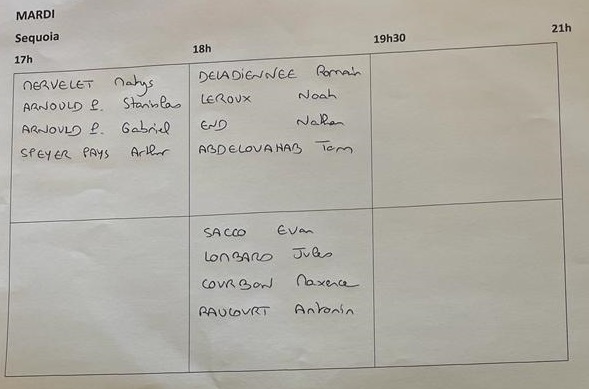 MARDI
Sequoia
17h 18h 19h30 21h
MERVELET Matys
ARNOULD P. Stanislas
ARNOULD P. Gabriel
SPEYER PAYS Arthur
DELADIENNEE Romain
LEROUX Noah
END Nathan
ABDELOUAHAB Tom
SACCO Evan
LOMBARD Jules
COURBON Maxence
RAUCOURT Antonin